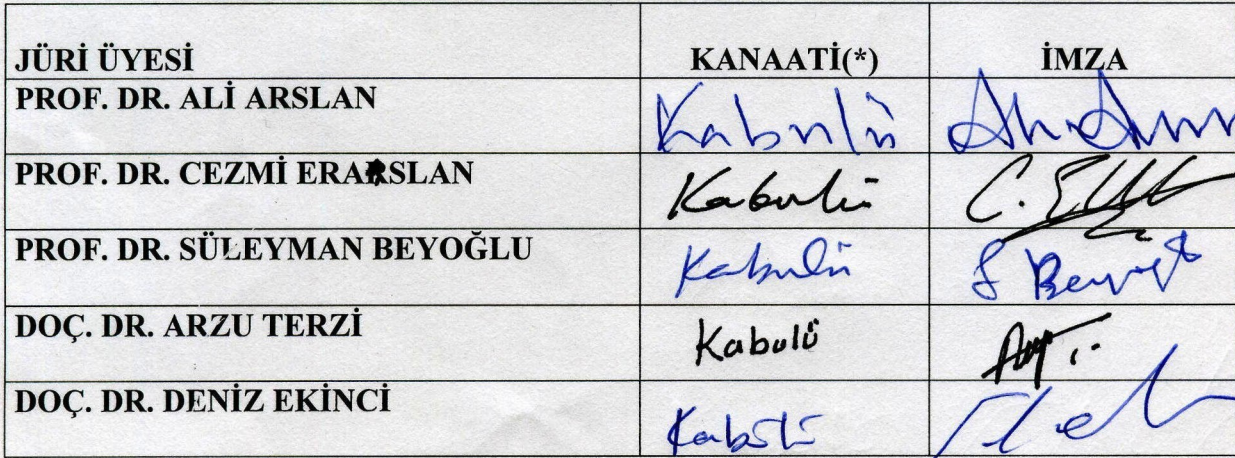 JÜRİ ÜYESİ KANAATİ(*) İMZA
PROF. DR. ALİ ARSLAN Kabulü
PROF. DR. CEZMİ ERARSLAN Kabulü C.
PROF. DR. SÜLEYMAN BEYOĞLU Kabulü S
DOÇ. DR. ARZU TERZİ Kabulü
DOÇ. DR. DENİZ EKİNCİ Kabulü